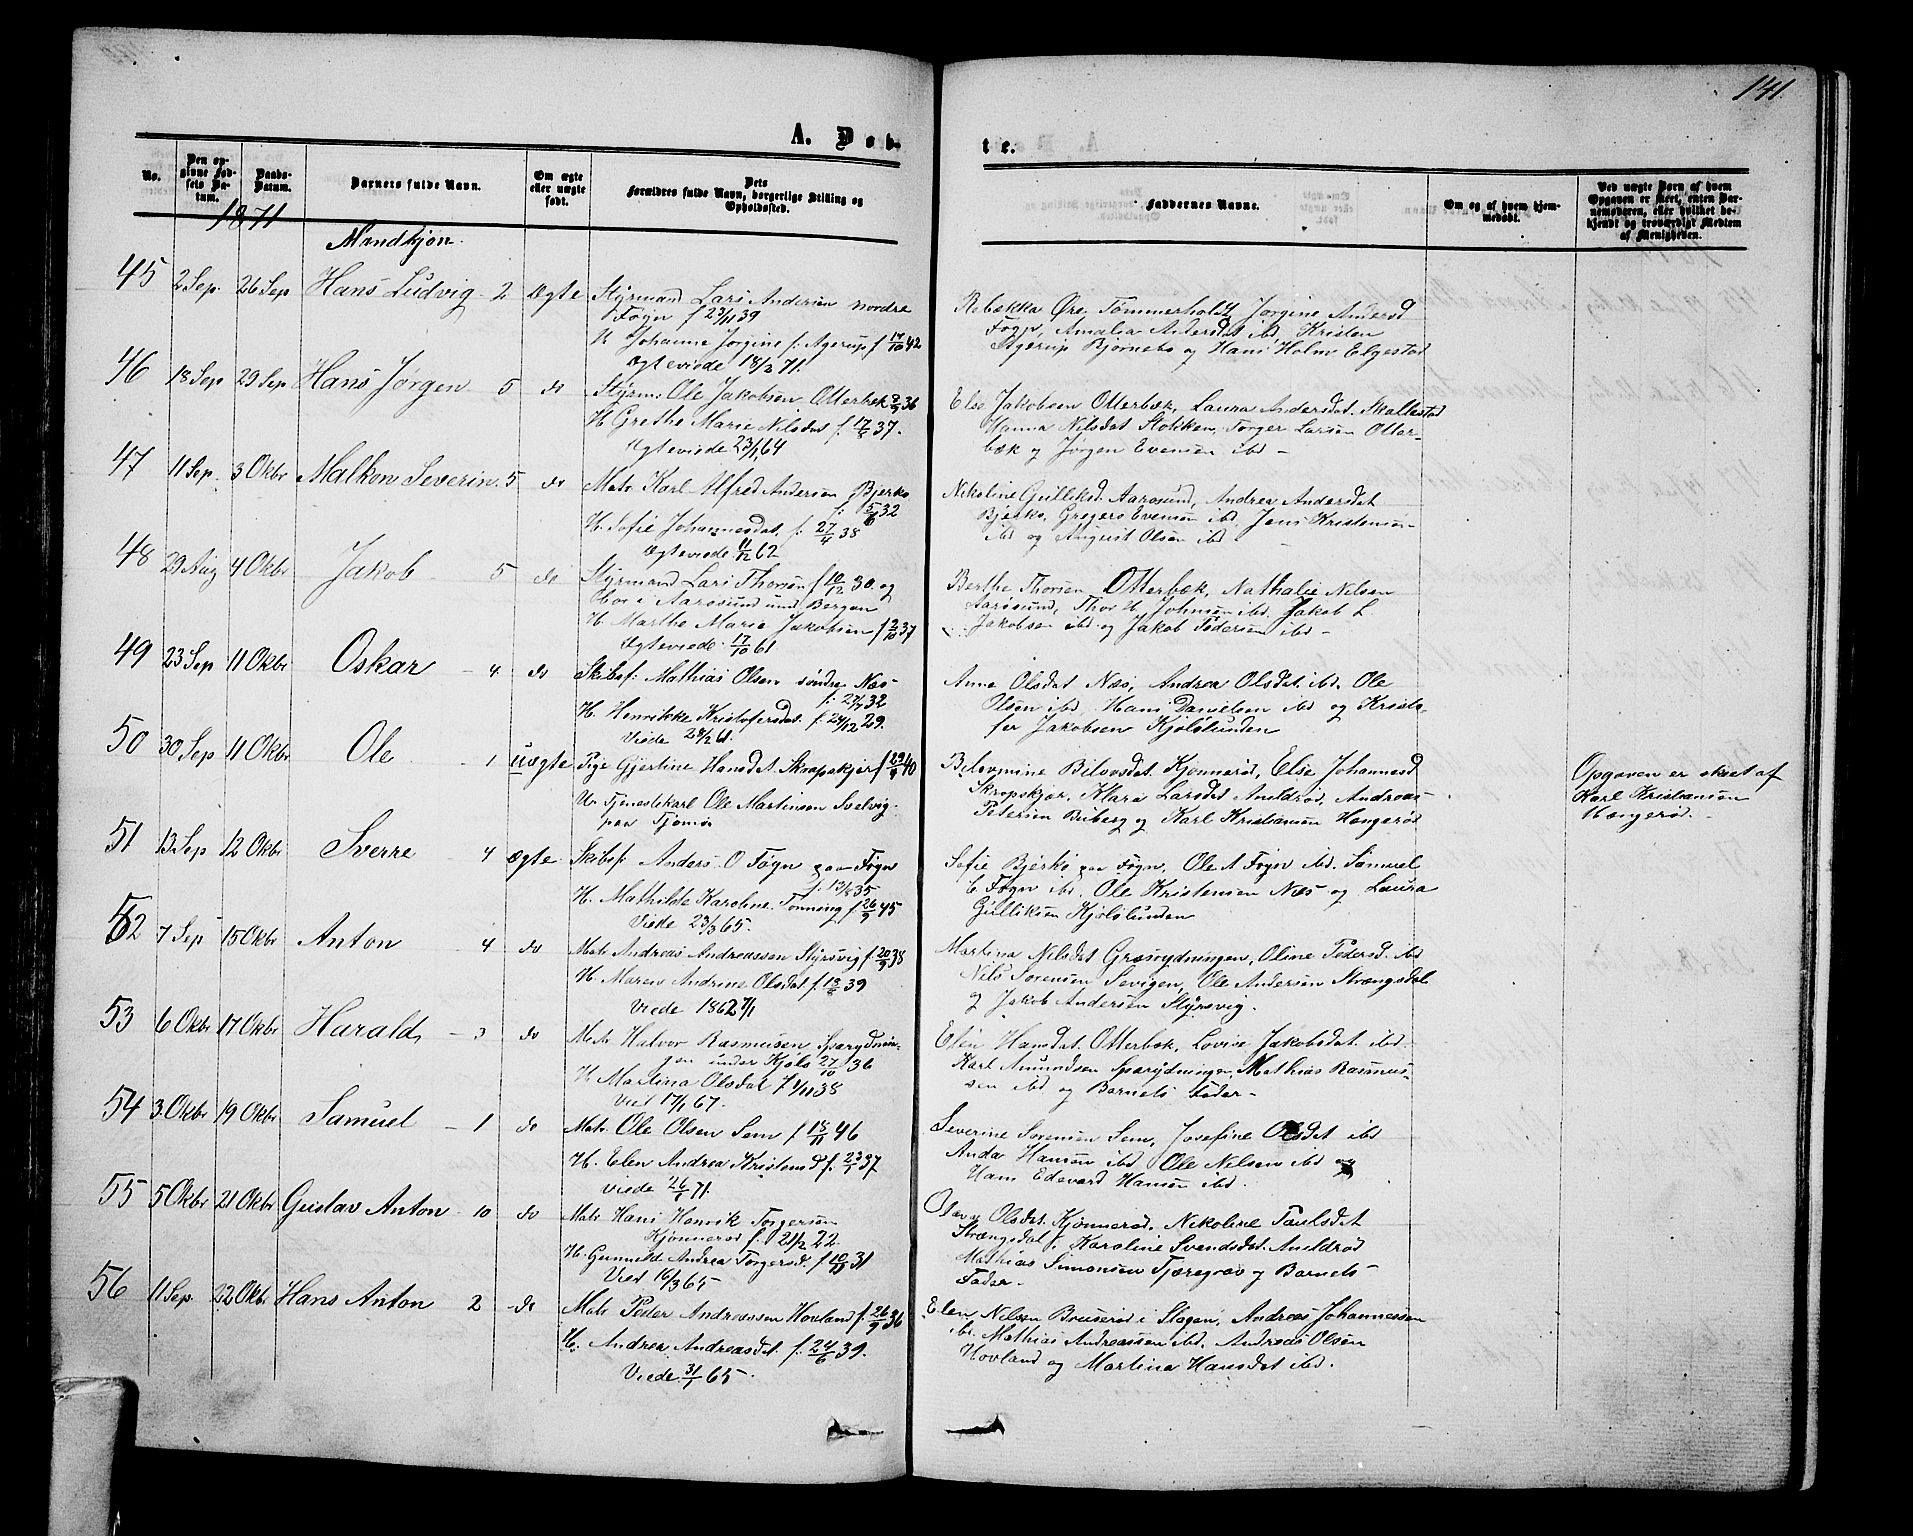 141.
A. Døb-
te.
No.
Den op-
givne Fød-
sels Da-
tum.
Daabs-
Datum.
Barnets fulde Navn.
Om ægte
eller uægte
født.
Dets
Forældres fulde Navn, borgerlige Stilling og
Opholdssted.
Faddernes Navne.
Om og af hvem hjem-
medøbt.
Ved uægte Børn af hvem
Opgaven er skeet, enten Bar-
nemoderen, eller hvilket be-
kjendt og troværdigt Medlem
af Menigheden.
1871
Mandkjøn.
45 2 Sep. 26 Sep Hans Ludvig - 2 Ægte Styrmand Lars Andersen nordre
Føgn f 23/11 39
H Johanne Jørgine f. Agerup f 17/10 42
Ægteviede 18/2 71.
Rebækka Øre, Tømmerholt, Jørgine Andersd
Føgn, Amalia Andersdat ibd, Kristen
Agerup Bjørnebo og Hans Holm Elgestad
46 18 Sep 29 Sep Hans Jørgen - 5 do Styrm: Ole Jakobsen Otterbek 2/9 36
H Grethe Marie Nilsdat f. 17/8 37.
Ægteviede 23/1 64
Else Jakobsen Otterbæk, Laura Andersdat. Skallestad
Hanna Nilsdat Stokken, Torger Larsen Otter-
bæk og Jørgen Evensen ibd -
47 11 Sep 3 Okbr Malkom Severin. 5 do Matr Karl Alfred Andersen Bjerkø
f. 5/10 32
H. Sofie Johannesdat, f. 27/4 38
Ægteviede 11/12 62
Nikoline Gulliksd. Aarøsund, Andrea Andersdat
Bjerkø, Gregers Evensen ibd, Jens Kristensen
ibd og August Olsen ibd.
48 29 Aug 4 Okbr Jakob - 5 do Styrmand Lars Thorsen f 10/12 30. og
bor i Aarøsund und Bergan
H. Marthe Marie Jakobsen f 2/10 37
Ægteviede 17/10 61
Berthe Thorsen Otterbæk, Nathalie Nilsen
Aarøsund, Thor H Johnsen ibd. Jakob L
Jakobsen ibd og Jakob Pedersen ibd -
49 23 Sep 11 Okbr Oskar - 4. do Skibsf: Mathias Olsen søndre Næs-
f: 27/7 32
H. Henrikke Kristofersdat f: 24/12 29.
Viede 28/2 61.
Anne Olsdat Næs, Andrea Olsdat ibd. Ole
Olsen ibd. Hans Danielsen ibd og Kristo-
fer Jakobsen Kjølølunden
50 30 Sep 11 Okbr Ole - 1 uægte Pige Gjertine Hansdat. Skrapskjær f 29/9 40
U. Tjenestekarl Ole Martinsen Svelvig
paa Tjømø
Belovmine Bilovsdat. Kjønnerød, Else Johannesd
Skrapskjær, Klara Larsdat Auldrød, Andreas
Petersen Buberg og Karl Kristiansen Hængerød
Opgaven er skeet af
Karl Kristiansen
Hængerød. -
51 13 Sep 12 Okbr Sverre - 4 Ægte. Skibsf: Anders O Føgn paa Føgn
f: 13/8 35
H. Mathilde Karoline Tønning f 26/9 45
Viede 23/3 65.
Sofie Bjerkø paa Føgn, Ole A Føgn ibd. Samuel
E Føgn ibd. Ole Kristensen Næs og Laura
Gulliksen Kjølølunden
52 7 Sep 15 Okbr Anton 4 do Matr Andreas Andreassen Styrsvig f 20/9 38
H. Maren Andrine Olsdat f 13/8 39
Viede 1862 7/1
Martina Nilsdat Græsrydningen, Oline Pedersd. ibd
Nils Sørensen Sevigen, Ole Andersen Strængsdal
og Jakob Andersen Styrsvig.
53 6 Okbr 17 Okbr Harald - 3 do Matr Halvor Rasmusen Sparydnin-
gen under Kjøls 27/10 36
H Martina Olsdat f 1/11 38
Vied 17/1 67.
Elen Hansdat Otterbæk, Lovise Jakobsdat ibd.
Karl Amundsen Sparydningen, Mathias Rasmus-
sen ibd og Barnets Fader -
54 3 Okbr 19 Okbr Samuel - 1 do Matr Ole Olsen Sem f 18/11 46
H. Elen Andrea Kristensd f. 23/1 37
Viede 26/1 71.
Severine Sørensen Sem, Josefine Olsdat ibd
Anda Hansen ibd Ole Nilsen ibd og
Hans Edevard Hansen ibd.
55 5 Okbr 21 Okbr Gustav Anton - 10 do Matr Hans Henrik Torgersen
Kjønnerød f. 21/2 22.
H. Gunnild Andrea Torgersd. f 10/11 31
Vied 16/3 65
Olava Olsdat. Kjønnerød. Nikoline Paulsdat
Strængsdal, Karoline Svendsdat. Auldrød
Mathias Simonsen Tjæregrav og Barnets
Fader -
56 11 Sep. 22 Okbr Hans Anton 2 do Matr Peder Andreassen Hovland f. 26/9 36
H. Andrea Andreasdat f. 24/6 39.
Viede 31/1 65 -
Elen Nilsen Bruserød i Slagen, Andreas Johannessen
ibd. Mathias Andreassen ibd. Andreas Olsen
Hovland og Martina Hansdat ibd.